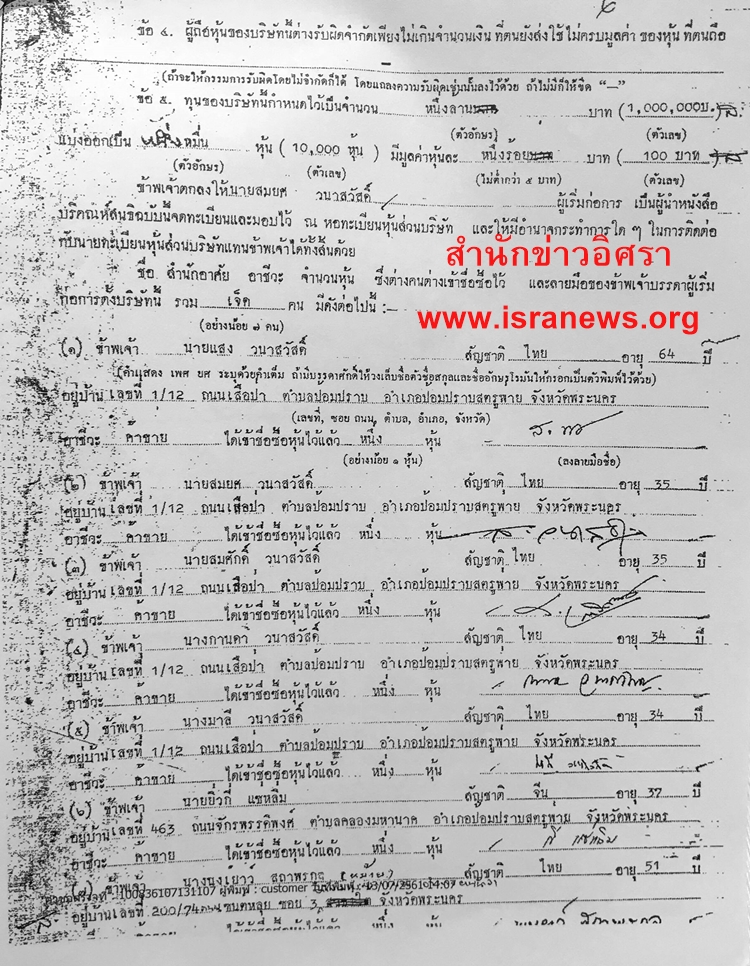 ข้อ ๔. ผู้ถือหุ้นของบริษัทนี้ต่างรับผิดจำกัดเพียงไม่เกินจำนวนเงิน ที่ตนยังส่งใช้ไม่ครบมูลค่า ของหุ้น ที่ตนถือ
—
(ถ้าจะให้กรรมการรับผิดโดยไม่จำกัดก็ได้ โดยแถลงความรับผิดเช่นนั้นลงไว้ด้วย ถ้าไม่มีก็ให้ขีด “—”
ข้อ ๕. ทุนของบริษัทนี้กำหนดไว้เป็นจำนวน หนึ่งล้าน บาท (1,000,000บ.)
(ตัวอักษร) (ตัวเลข)
แบ่งออกเป็น หนึ่งหมื่น หุ้น ( 10,000 หุ้น ) มีมูลค่าหุ้นละ หนึ่งร้อย บาท ( 100 บาท )
(ตัวอักษร) (ตัวเลข) (ไม่ต่ำกว่า ๕ บาท) (ตัวเลข)
ข้าพเจ้าตกลงให้นายสมยศ วนาสวัสดิ์ ผู้เริ่มก่อการ เป็นผู้นำหนังสือ
บริคณห์สนธิฉบับนี้จดทะเบียนและมอบไว้ ณ หอทะเบียนหุ้นส่วนบริษัท และให้มีอำนาจกระทำการใด ๆ ในการติดต่อ
กับนายทะเบียนหุ้นส่วนบริษัทแทนข้าพเจ้าได้ทั้งสิ้นด้วย
สำนักข่าวอิศรา
ชื่อ สำนักอาศัย อาชีวะ จำนวนหุ้น ซึ่งต่างคนต่างเข้าชื่อซื้อไว้ และลายมือของข้าพเจ้าบรรดาผู้เริ่ม
ก่อการตั้งบริษัทนี้ รวม เจ็ด คน มีดังต่อไปนี้ :—
www.isranews.org
(อย่างน้อย ๗ คน)
(๑) ข้าพเจ้า นายแสง วนาสวัสดิ์ สัญชาติ ไทย อายุ 64 ปี
(คำแสดง เพศ ยศ ระบุด้วยคำเต็ม ถ้ามีบรรดาศักดิ์ให้วงเล็บชื่อตัวชื่อสกุลและชื่ออักษรโรมันให้กรอกเป็นตัวพิมพ์ไว้ด้วย)
อยู่บ้านเลขที่ 1/12 ถนนเสือป่า ตำบลป้อมปราบ อำเภอป้อมปราบสตรูพ่าย จังหวัดพระนคร
(เลขที่, ซอย ถนน, ตำบล, อำเภอ, จังหวัด)
อาชีวะ ค้าขาย ได้เข้าชื่อซื้อหุ้นไว้แล้ว หนึ่ง หุ้น
(อย่างน้อย ๑ หุ้น) (ลงลายมือชื่อ)
(๒) ข้าพเจ้า นายสมยศ วนาสวัสดิ์ สัญชาติ ไทย อายุ 35 ปี
อยู่บ้านเลขที่ 1/12 ถนนเสือป่า ตำบลป้อมปราบ อำเภอป้อมปราบสตรูพ่าย จังหวัดพระนคร
อาชีวะ ค้าขาย ได้เข้าชื่อซื้อหุ้นไว้แล้ว หนึ่ง หุ้น
(๓) ข้าพเจ้า นายสมศักดิ์ วนาสวัสดิ์ สัญชาติ ไทย อายุ 35 ปี
อยู่บ้านเลขที่ 1/12 ถนนเสือป่า ตำบลป้อมปราบ อำเภอป้อมปราบสตรูพ่าย จังหวัดพระนคร
อาชีวะ ค้าขาย ได้เข้าชื่อซื้อหุ้นไว้แล้ว หนึ่ง หุ้น
(๔) ข้าพเจ้า นางกานดา วนาสวัสดิ์ สัญชาติ ไทย อายุ 34 ปี
อยู่บ้านเลขที่ 1/12 ถนนเสือป่า ตำบลป้อมปราบ อำเภอป้อมปราบสตรูพ่าย จังหวัดพระนคร
อาชีวะ ค้าขาย ได้เข้าชื่อซื้อหุ้นไว้แล้ว หนึ่ง หุ้น
(๕) ข้าพเจ้า นางมาลี วนาสวัสดิ์ สัญชาติ ไทย อายุ 34 ปี
อยู่บ้านเลขที่ 1/12 ถนนเสือป่า ตำบลป้อมปราบ อำเภอป้อมปราบสตรูพ่าย จังหวัดพระนคร
อาชีวะ ค้าขาย ได้เข้าชื่อซื้อหุ้นไว้แล้ว หนึ่ง หุ้น
(๖) ข้าพเจ้า นายยิ่วกี่ แซ่หลิม สัญชาติ จีน อายุ 37 ปี
อยู่บ้านเลขที่ 463 ถนนจักรพรรดิพงศ์ ตำบลคลองมหานาค อำเภอป้อมปราบสตรูพ่าย จังหวัดพระนคร
อาชีวะ ค้าขาย ได้เข้าชื่อซื้อหุ้นไว้แล้ว หนึ่ง หุ้น
(๗) ข้าพเจ้า นางนงเยาว์ สถาพรกุล (หม้าย) สัญชาติ ไทย อายุ 51 ปี
ผู้พิมพ์ : customer วันที่พิมพ์ : 13/07/2561 14:07
อยู่บ้านเลขที่ 200/74 ซอย 3 จังหวัดพระนคร
อาชีวะ ค้าขาย ได้เข้าชื่อซื้อหุ้นไว้แล้ว หนึ่ง หุ้น